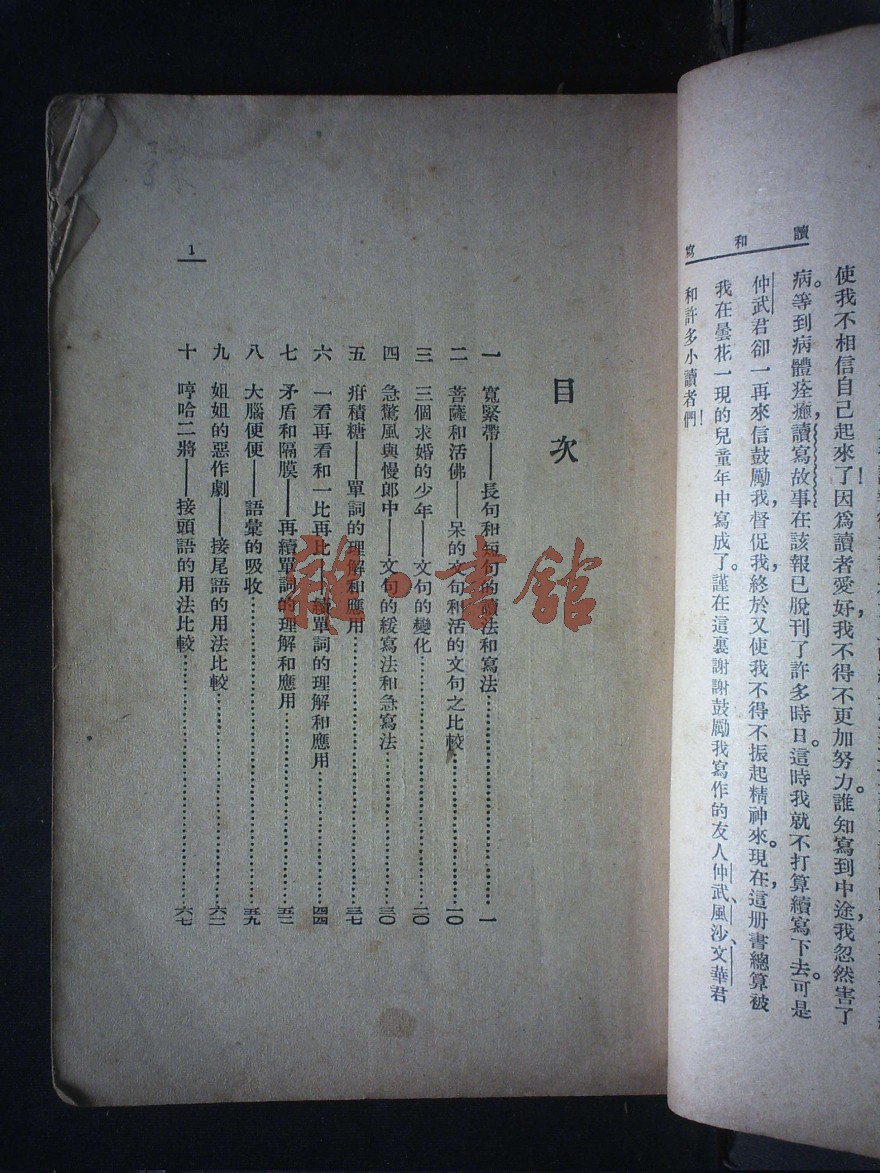 讀和寫
使我不相信自己起來了！因爲讀者愛好，我不得不更加努力。誰知寫到中途，我忽然害了
病。等到病體痊癒，讀寫故事在該報已脫刊了許多時日。這時我就不打算續寫下去。可是
仲武君卻一再來信鼓勵我，督促我，終於又使我不得不振起精神來。現在，這册書總算被
我在曇花一現的兒童年中寫成了。謹在這裏謝謝鼓勵我寫作的友人仲武、風沙、文華君
和許多小讀者們！
目次
一 寬緊帶——長句和短句的讀法和寫法……一
二 菩薩和活佛——呆的文句和活的文句之比較……一〇
三 三個求婚的少年——文句的變化……二〇
四 急驚風與慢郎中——文句的緩寫法和急寫法……三〇
五 疳積糖——單詞的理解和應用……三七
六 一看再看和一比再比——續單詞的理解和應用……四四
七 矛盾和隔膜——再續單詞的理解和應用……五二
八 大腦便便——語彙的吸收……五九
九 姐姐的惡作劇——接尾語的用法比較……六二
十 哼哈二將——接頭語的用法比較……六七
1
雜·書館